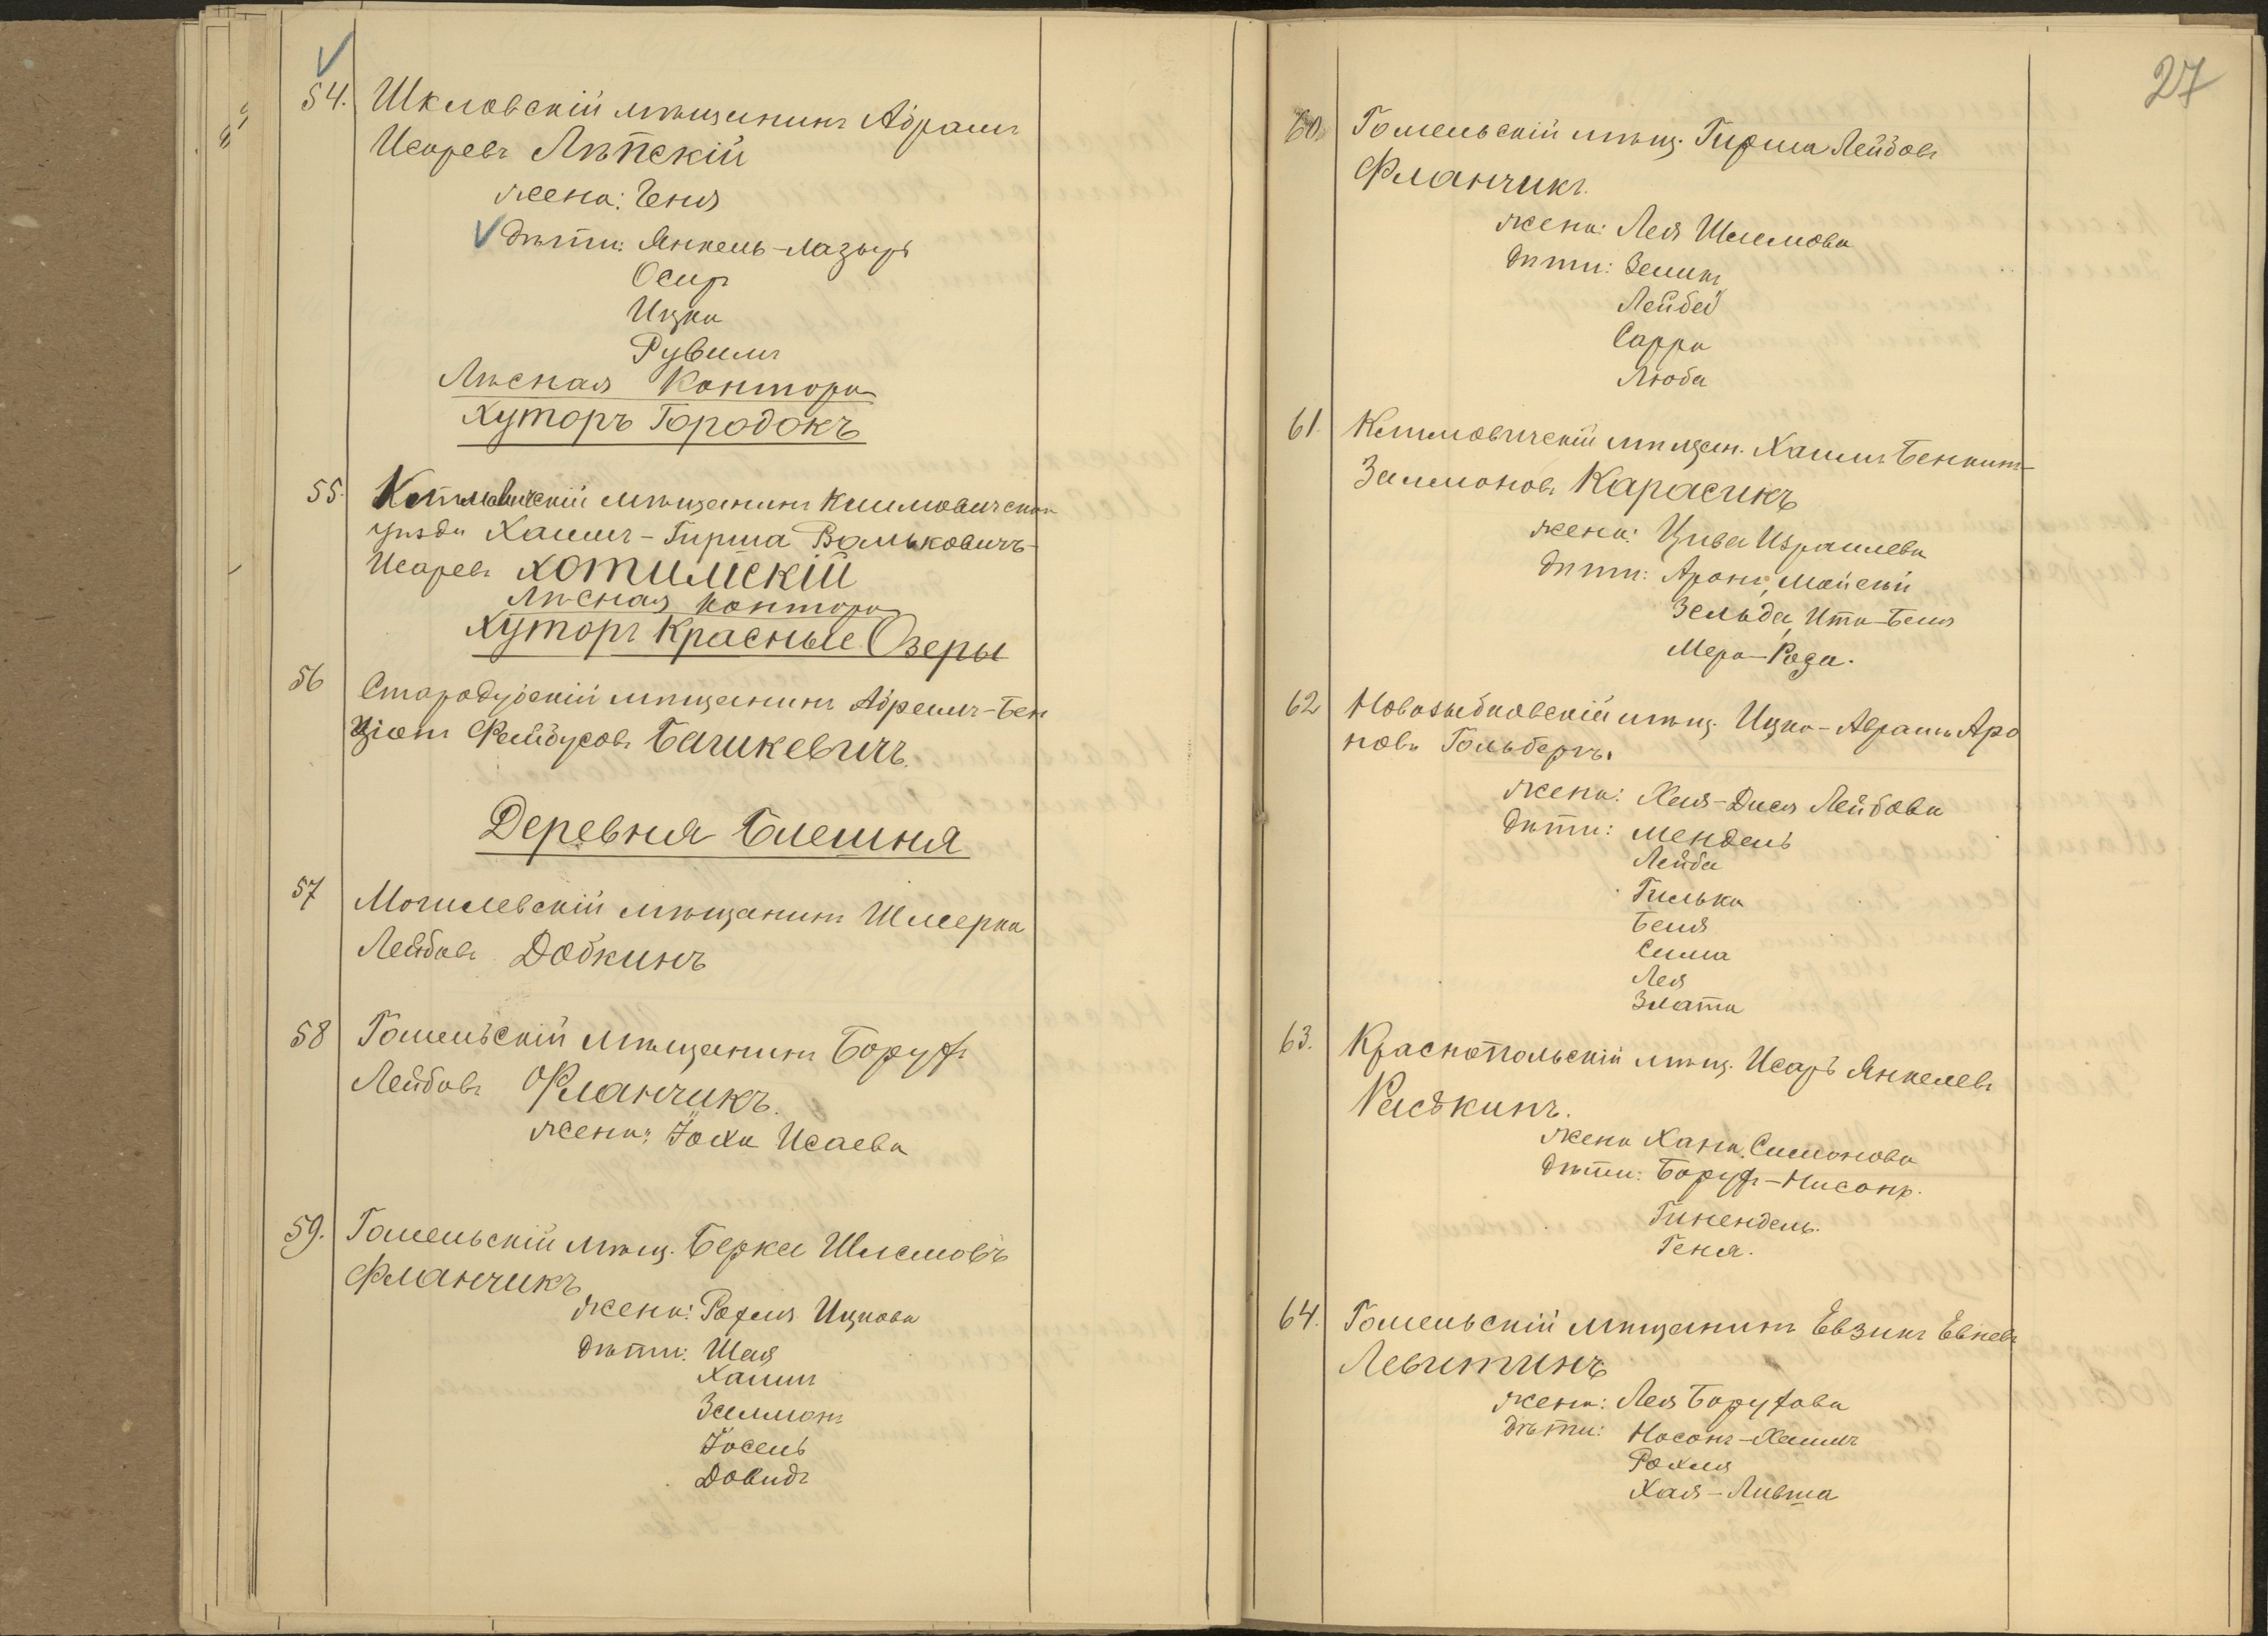 54. Шкловскій мѣщанинъ Абрамъ
Исаревъ Лѣпскій
жена: Геня
дѣти: Янкель-Лазырь
Осиръ
Ицка
Рувимъ
Лѣсная Контора
Хуторъ Городокъ
55. мѣщанинъ Климовичскаго
уѣзда Хаимъ-Гирша Вольковичъ-
Исаревъ Хотимскій
Лѣсная контора
Хуторъ Красные Озеры
56 Стародубскій мѣщанинъ Абрамъ-Бен
ціонъ Фейбусовъ Башкевичъ.
Деревня Блешня
57 Могилевскій мѣщанинъ Шмерка
Лейбовъ Добкинъ
58 Гомельскій мѣщанинъ Борухъ
Лейбовъ Фланчикъ.
жена: Іоха Исаева
59. Гомельскій мѣщ. Берка Шлемовъ
Фланчикъ
жена: Рохля Ицкова
дѣти: Шая
Хаимъ
Залманъ
Іосель
Довидъ
27
60. Гомельскій мѣщ. Гирша Лейбовъ
Фланчикъ.
жена: Лея Шлемова
дѣти: Зеликъ
Лейба
Сарра
Люба
61. Климовичскій мѣщан. Хаимъ Бенкит-
Залмановъ Карасикъ
жена: Цива Израилева
дѣти: Аронъ, Мойсей
Зельда, Ита-Беля
Мера-Рода.
62 Новозыбковскій мѣщ. Ицка-Абрамъ Аро
новъ Гольбергъ.
жена: Хая-Дися Лейбова
дѣти: Мендель
Лейба
Гилька
Беля
Сима
Лея
Злата
63. Краснопольскій мѣщ. Исаръ Янкелевъ
Раскинъ.
жена Хана Симонова
дѣти: Борухъ-Нисонъ.
Гинендель.
Геня.
64. Гомельскій мѣщанинъ Евзикъ Евневъ
Левитинъ
жена: Лея Борухова
дѣти: Носонъ-Хаимъ
Рохля
Хая-Ливша